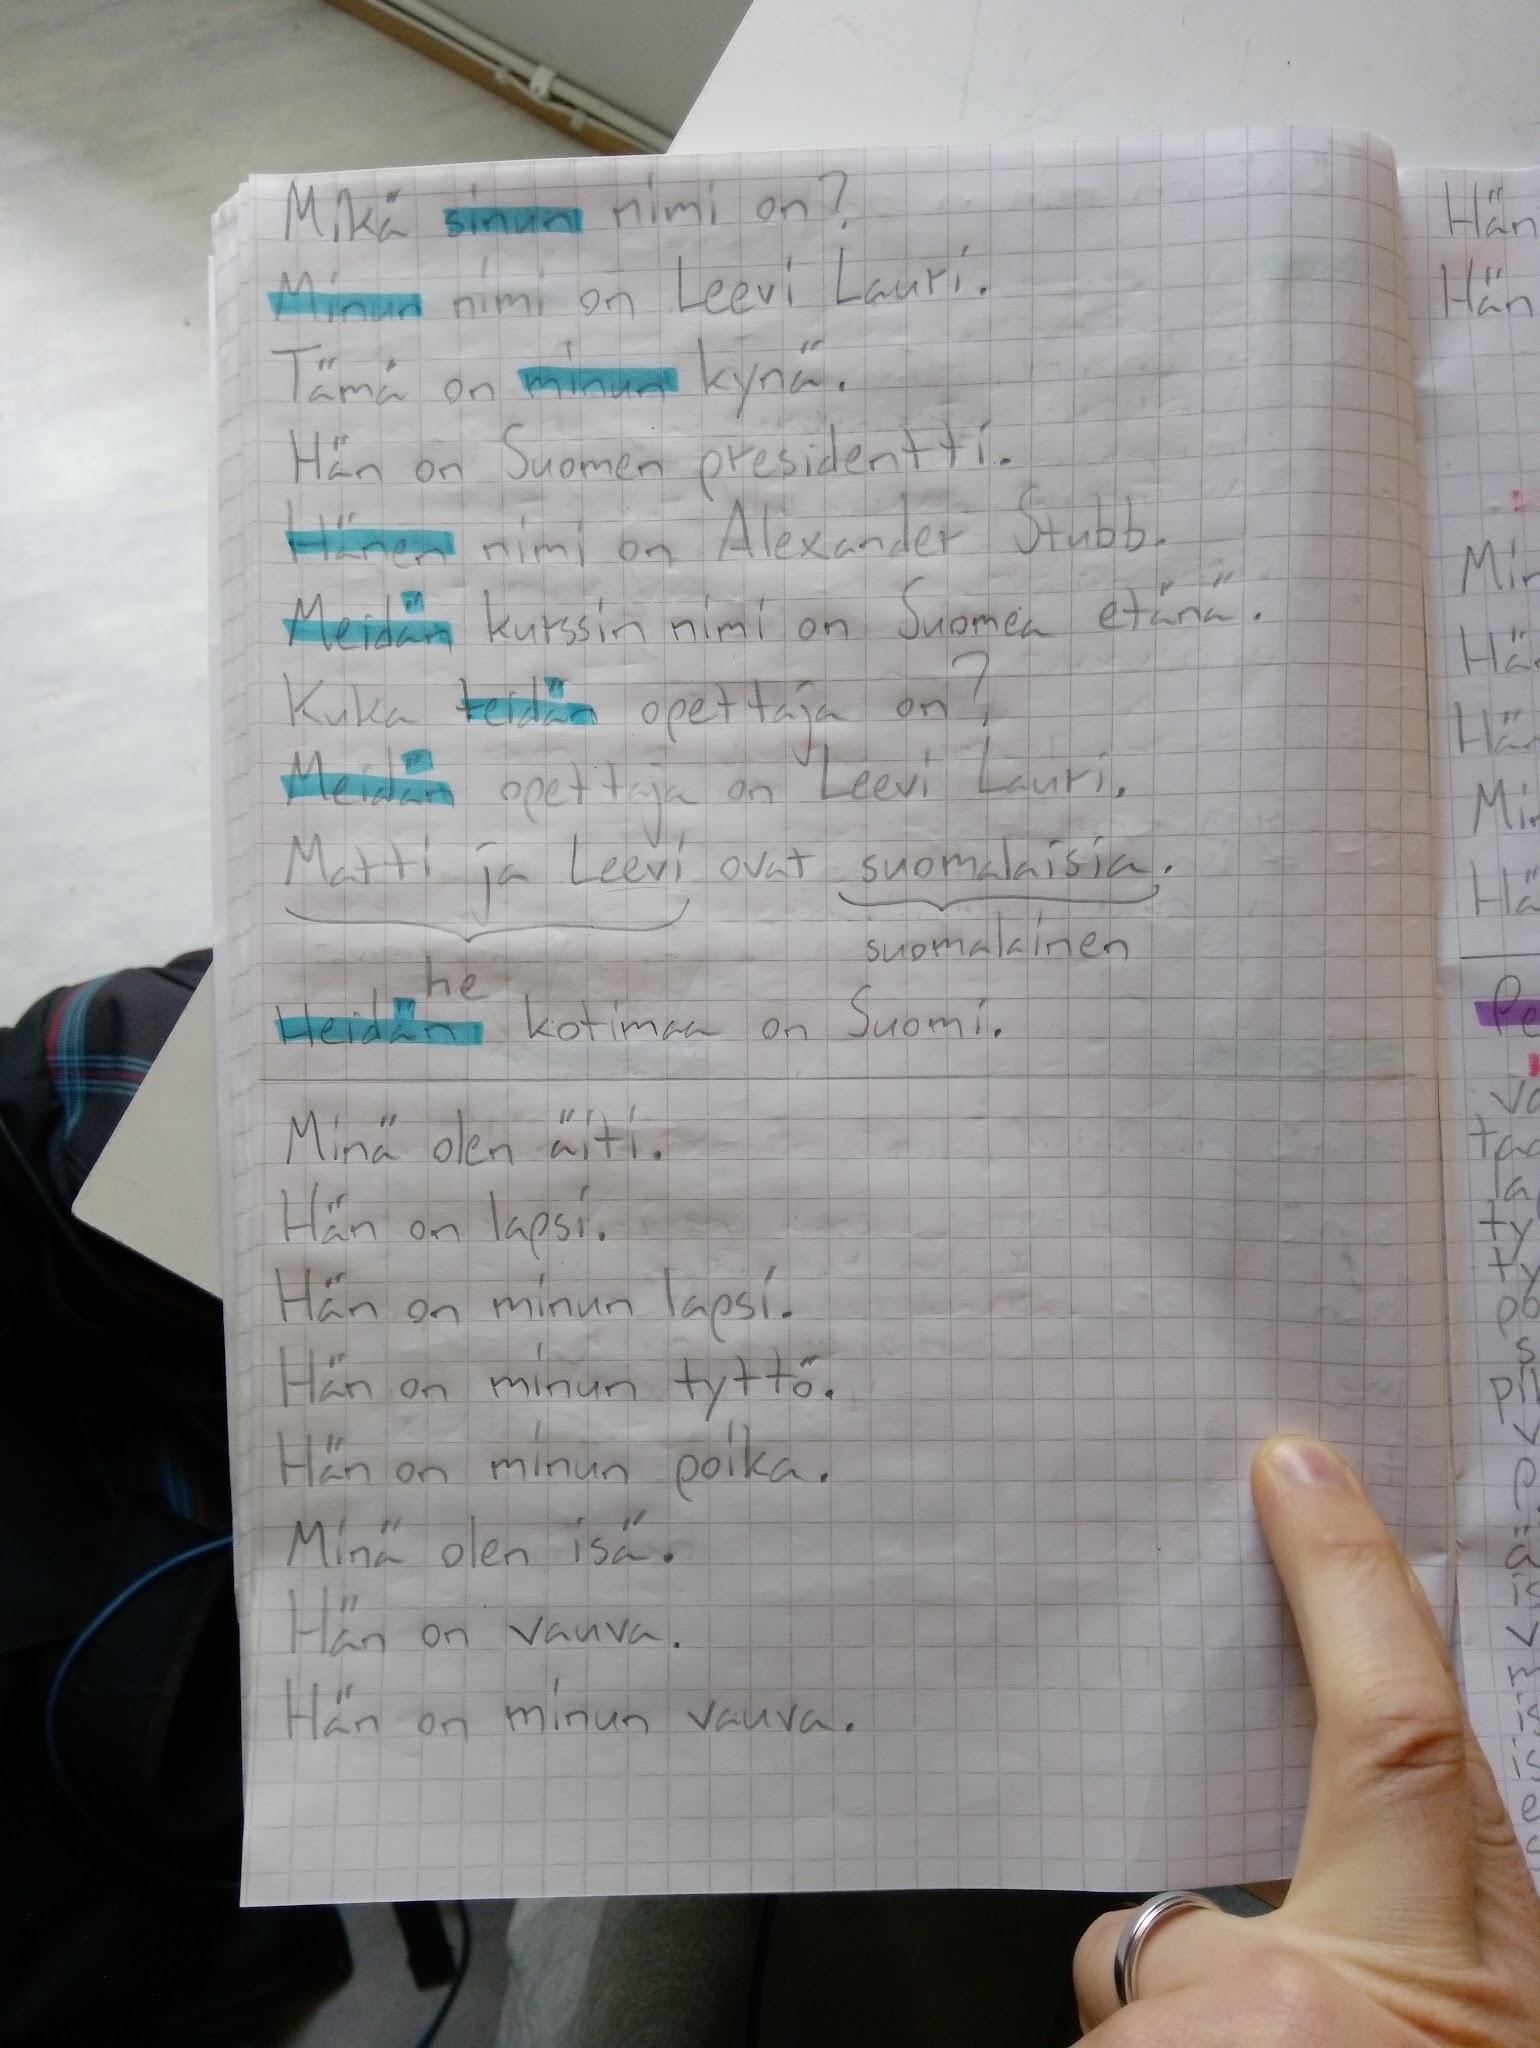 Mikä sinun nimi on?
Minun nimi on Leevi Lauri.
Tämä on minun kynä.
Hän on Suomen presidentti.
Hänen nimi on Alexander Stubb.
Meidän kurssin nimi on Suomea etänä.
Kuka teidän opettaja on?
Meidän opettaja on Leevi Lauri.
Matti ja Leevi ovat suomalaisia.
suomalainen
he
Heidän kotimaa on Suomi.
Minä olen äiti.
Hän on lapsi.
Hän on minun lapsi.
Hän on minun tyttö.
Hän on minun poika.
Minä olen isä.
Hän on vauva.
Hän on minun vauva.
Hän
Hän